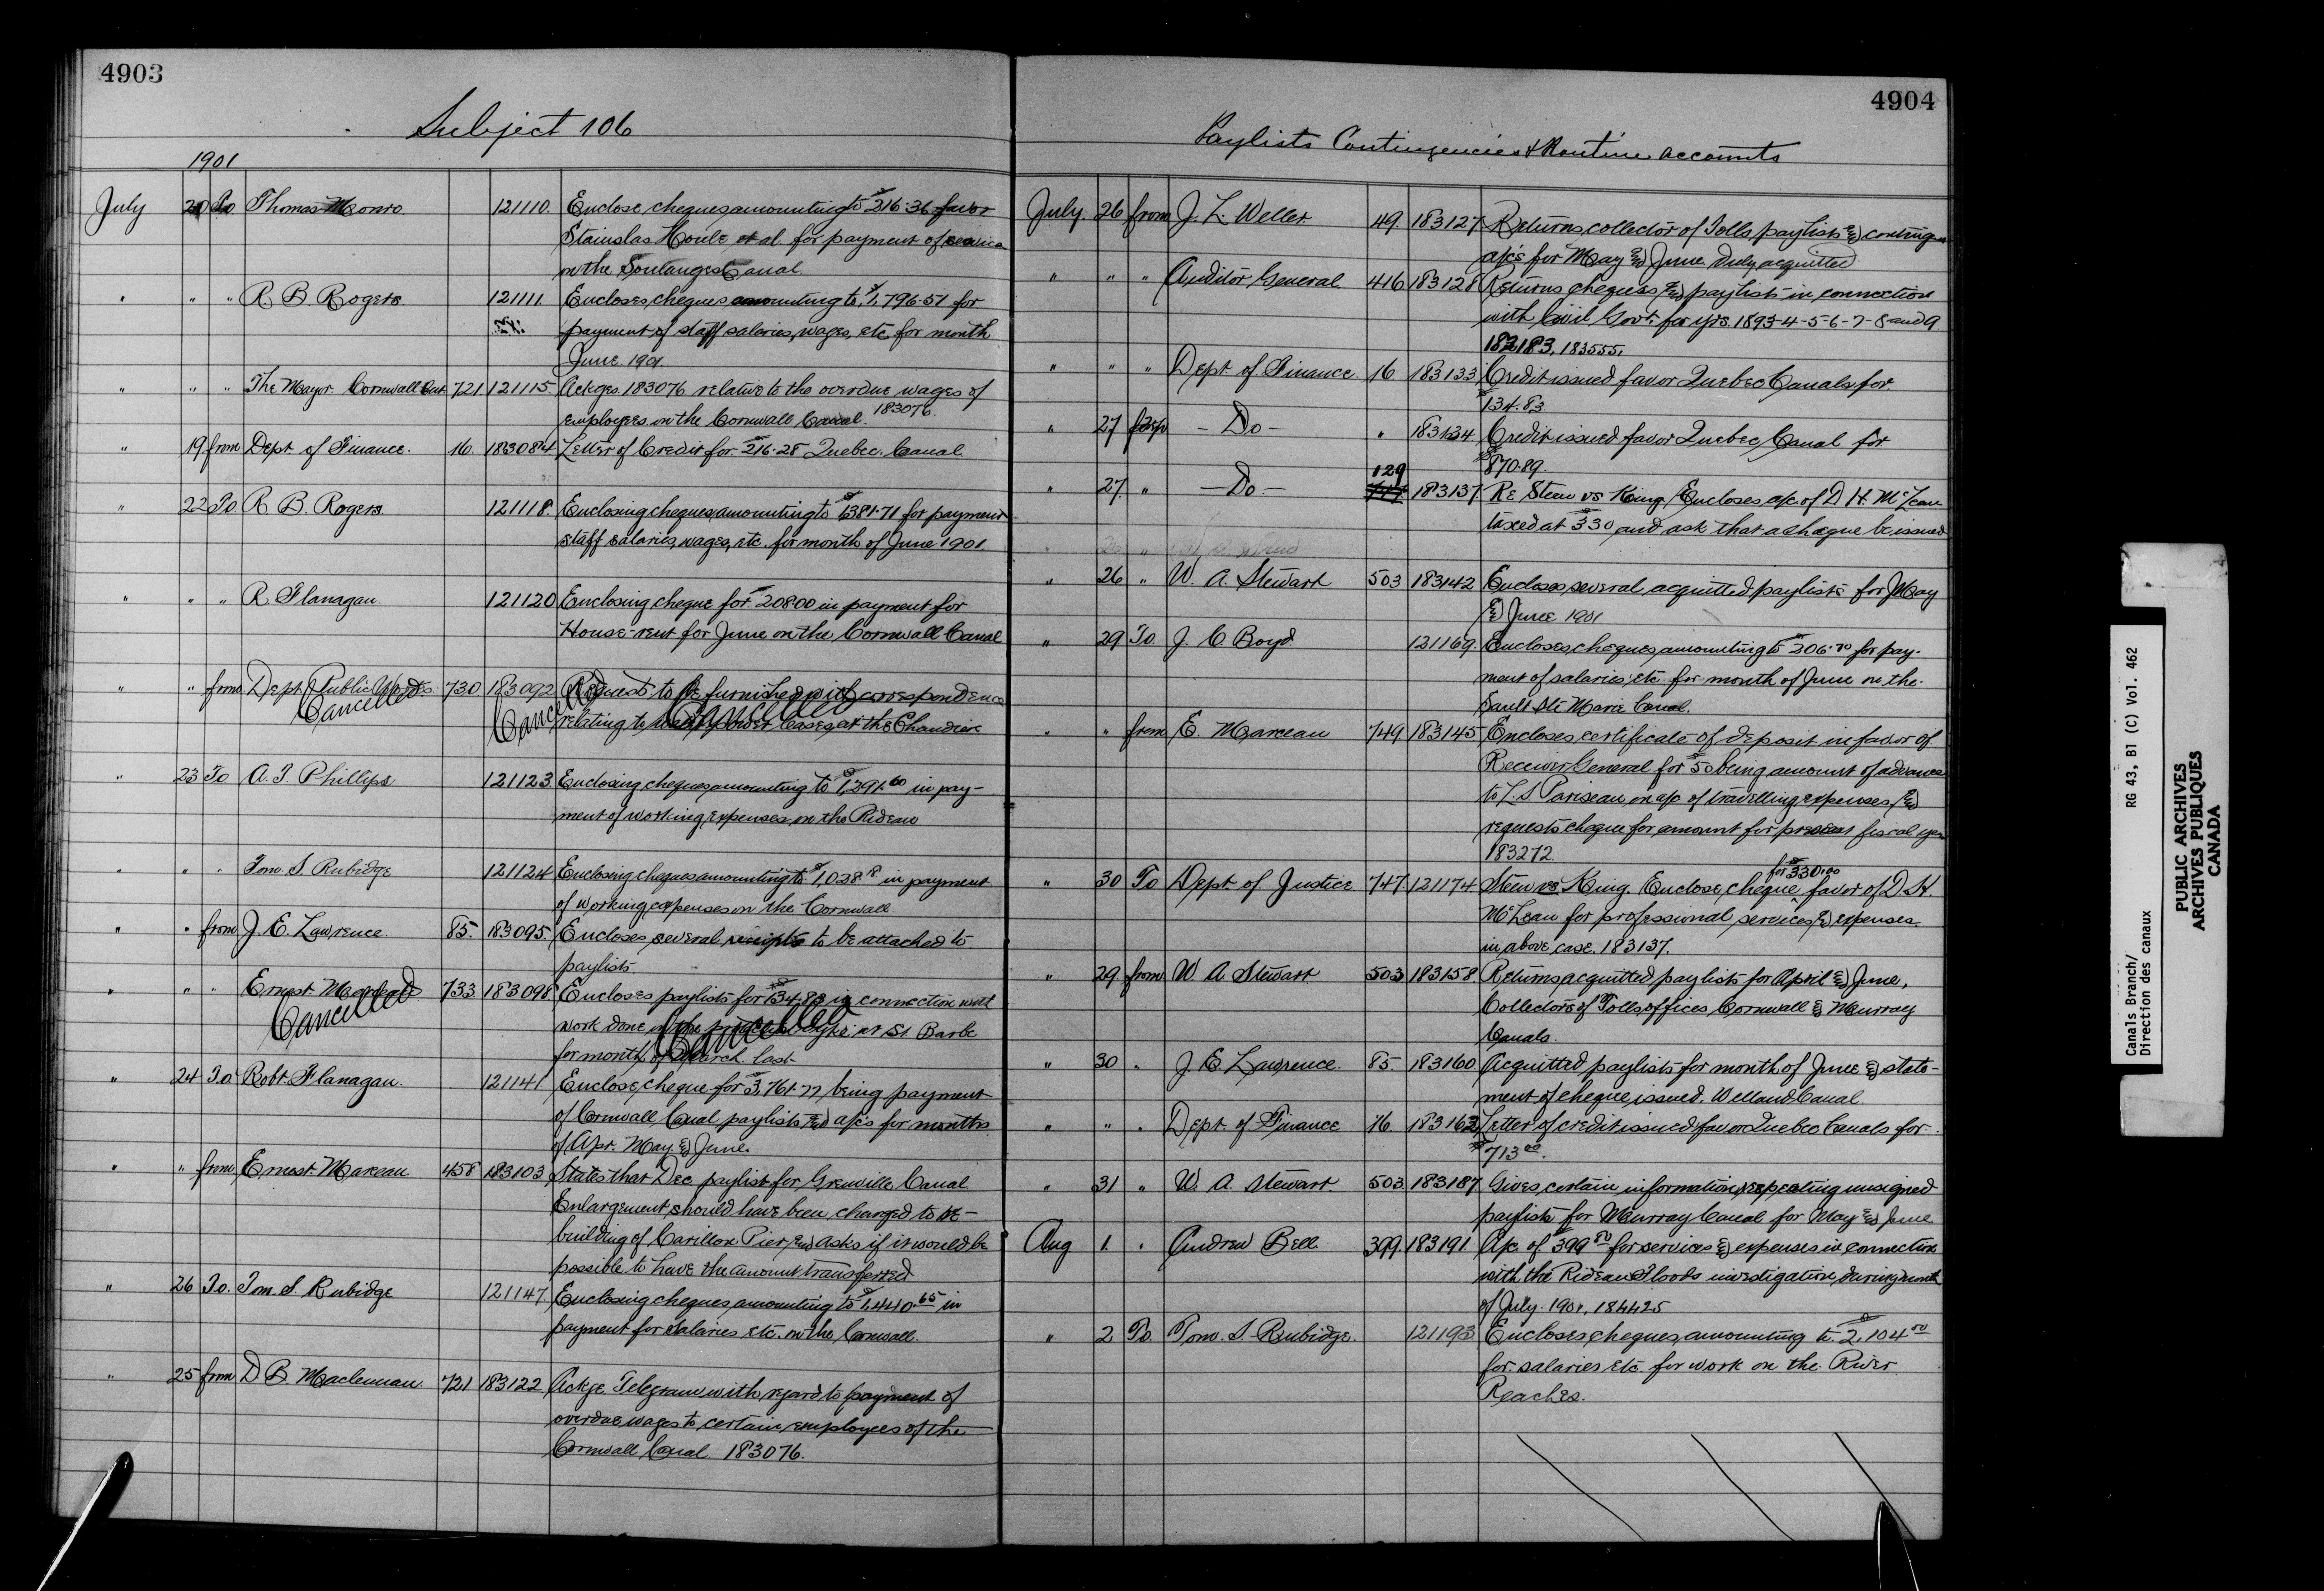 4903
Subject 106
1901
July 20 To Thomas Monro 121110 Enclose cheques amounting to $216.36 favor
Stainslas Houle et al. for payment of service
on the Soulanges Canal.
" " " R B. Rogers 121111 Encloses cheques amounting to $1,796.51 for
payment of staff salaries, wages, etc. for month
June 1901.
" " " The Mayor Cornwall Ont 721 121115 Ackges. 183076 relative to the overdue wages of
employees on the Cornwall Canal. 183076.
" 19 from Dept of Finance. 16. 183084 Letter of Credit for $216.28 Quebec Canal
" 22 To R B. Rogers. 121118. Enclosing cheques amounting to $1381.71 for payment
staff salaries, wages, etc. for month of June 1901.
" " " R Flanagan. 121120 Enclosing cheque for $208.00 in payment for
House-rent for June on the Cornwall Canal
" " from Dept Public Works. 730 183092 Request to be furnished with correspondence
Cancelled Cancelled Cancelled
relating to water power leases at the Chaudiere
" 23 To A. T. Phillips 121123. Enclosing cheques amounting to $1,391.60 in pay-
ment of working expenses on the Rideau
" " " Tom. S. Rubidge 121124 Enclosing cheques amounting to $1,028 in payment
of working expenses on the Cornwall
" " from J. E. Lawrence. 85. 183095. Encloses several receipts to be attached to
paylists
" " " Ernest Marceau 733 183098 Encloses paylists for $134.83 in connection with
Cancelled Cancelled
work done on the at St Barbe
for month of March last
" 24 To Robt. Flanagan. 121141 Enclose cheque for $3,761.77 being payment
of Cornwall Canal paylists & a/cs for months
of Apr. May & June.
" " from Ernest Marceau 458 183103 States that Dec paylist for Grenville Canal
Enlargement should have been charged to re-
building of Carillon Pier, and asks if it would be
possible to have the amount transferred
" 26 To. Tom. S. Rubidge 121147 Enclosing cheques amounting to $1,440.65 in
payment for salaries etc. on the Cornwall.
" 25 from D B. Maclennan. 721 183122 Ackge Telegram with regard to payment of
overdue wages to certain employees of the
Cornwall Canal 183076.
4904
Paylists Contingencies & Routine accounts
July. 26 from J. L. Weller. 49. 183127 Returns collector of Tolls paylists & contingen
a/cs for May & June Duly acquitted
" " " Auditor General 416 183128 Returns cheques & paylists in connection
with Civil Govt. for yrs. 1893-4-5-6-7-8 and 9
182183, 183555.
" " " Dept of Finance. 16. 183133 Credit issued favor Quebec Canals for
$134.83
" 27 - Do - " 183134 Credit issued favor Quebec Canal for
$870.89.
" 27 " - Do - 129 183137 Re Steen vs King. Encloses a/c of D H. McLean
taxed at $330 and ask that a cheque be issued
" 26 " W. A. Stewart 503 183142 Encloses several acquitted paylists for May
& June 1901
" 29 To. J. C. Boyd. 121169. Encloses cheques amounting to $206.70 for pay-
ment of salaries etc for month of June on the
Sault Ste Marie Canal.
" " from E. Marceau 749 183145 Encloses certificate of deposit in favor of
Receiver General for $50 being amount of advance
to L. S Pariseau on a/c of travelling expenses &
requests cheque for amount for present fiscal year
183272.
" 30 To Dept. of Justice 747 121174 Steen vs King. Enclose cheque for $330.00 favor of D H.
McLean for professional services & expenses
in above case. 183137.
" 29 from W. A. Stewart 503 183158 Returns acquitted paylists for April & June,
Collectors of Tolls offices Cornwall & Murray
Canals.
" 30 " J. E. Lawrence. 85. 183160 Acquitted paylists for month of June & state-
ment of cheque issued. Welland Canal
" " " Dept. of Finance 16. 183162 Letter of credit issued favor Quebec Canals for
$713.00.
" 31 " W. A. Stewart. 503. 183187 Gives certain information respecting unsigned
paylists for Murray Canal for May & June
Aug 1. " Andrew Bell 399. 183191. A/c of $399.80 for services & expenses in connection
with the Rideau Floods investigation during month
of July. 1901. 184425
" 2 To Tom. S. Rubidge. 121193 Encloses cheques amounting to $2,104.50
for salaries etc. for work on the River
Reaches.
Canals Branch/ RG 43, B1 (C) Vol. 462
Direction des canaux
PUBLIC ARCHIVES
ARCHIVES PUBLIQUES
CANADA